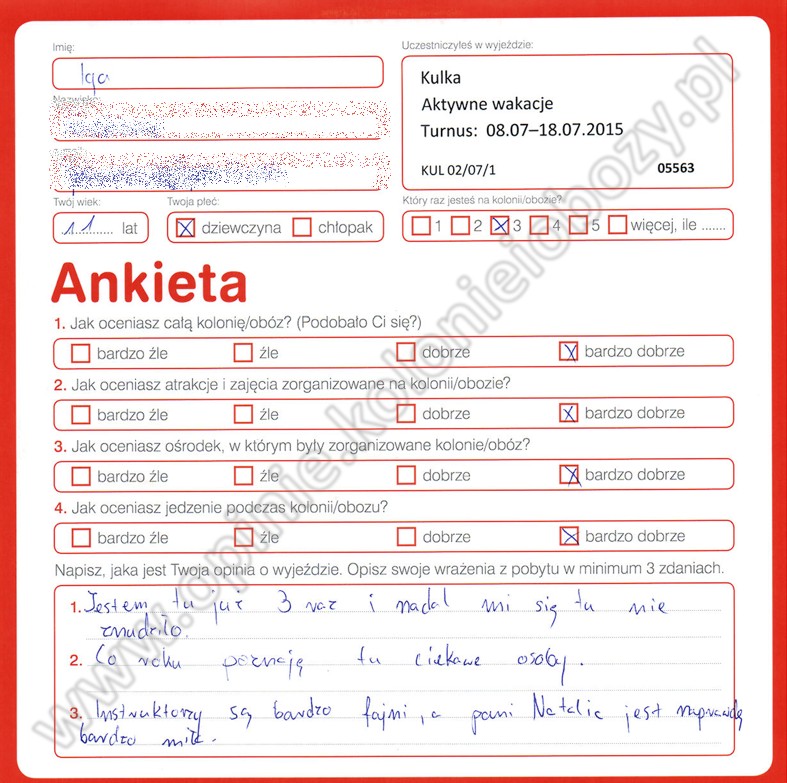 Imię:
Iga
Nazwisko:
Uczestniczyłeś w wyjeździe:
Kulka
Aktywne wakacje
Turnus: 08.07–18.07.2015
KUL 02/07/1 05563
Twój wiek:
11 lat
Twoja płeć:
dziewczyna chłopak
Który raz jesteś na kolonii/obozie?
1 2 3 4 5 więcej, ile .......
Ankieta
1. Jak oceniasz całą kolonię/obóz? (Podobało Ci się?)
bardzo źle źle dobrze bardzo dobrze
2. Jak oceniasz atrakcje i zajęcia zorganizowane na kolonii/obozie?
bardzo źle źle dobrze bardzo dobrze
3. Jak oceniasz ośrodek, w którym były zorganizowane kolonie/obóz?
bardzo źle źle dobrze bardzo dobrze
4. Jak oceniasz jedzenie podczas kolonii/obozu?
bardzo źle źle dobrze bardzo dobrze
Napisz, jaka jest Twoja opinia o wyjeździe. Opisz swoje wrażenia z pobytu w minimum 3 zdaniach.
1. Jestem tu już 3 raz i nadal mi się tu nie
znudziło.
2. Co roku poznaję tu ciekawe osoby.
3. Instruktorzy są bardzo fajni, a pani Natalia jest naprawdę
bardzo miła.
www.opinie.kolonieiobozy.pl